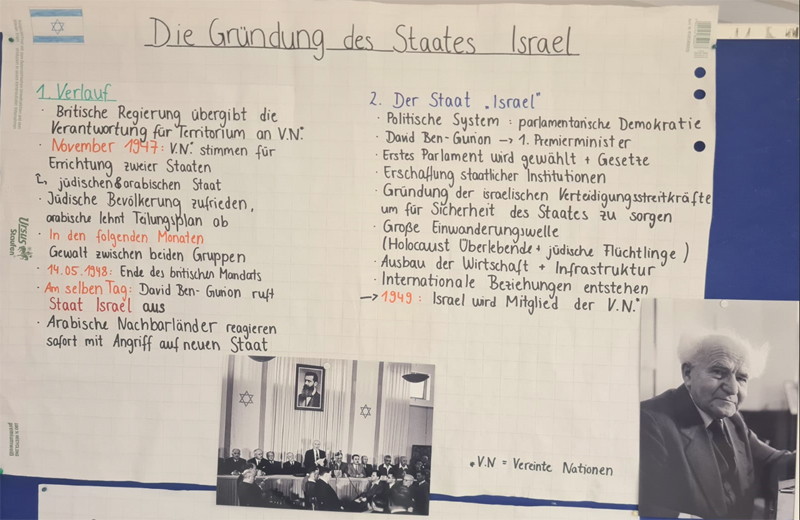 Die Gründung des Staates Israel
1. Verlauf
· Britische Regierung übergibt die
Verantwortung für Territorium an V.N.*
· November 1947: V.N.* stimmen für
Errichtung zweier Staaten
↳ jüdischen & arabischen Staat
· Jüdische Bevölkerung zufrieden,
arabische lehnt Talungsplan ab
· In den folgenden Monaten
Gewalt zwischen beiden Gruppen
· 14.05.1948: Ende des britischen Mandats
· Am selben Tag: David Ben-Gurion ruft
Staat Israel aus
· Arabische Nachbarländer reagieren
sofort mit Angriff auf neuen Staat
2. Der Staat „Israel"
· Politische System: parlamentarische Demokratie
· David Ben-Gurion → 1. Premierminister
· Erstes Parlament wird gewählt + Gesetze
· Erschaffung staatlicher Institutionen
· Gründung der israelischen Verteidigungsstreitkräfte
um für Sicherheit des Staates zu sorgen
· Große Einwanderungswelle
(Holocaust Überlebende + jüdische Flüchtlinge)
· Ausbau der Wirtschaft + Infrastruktur
· Internationale Beziehungen entstehen
→ 1949: Israel wird Mitglied der V.N.*
*V.N = Vereinte Nationen
URSUS
Staufen